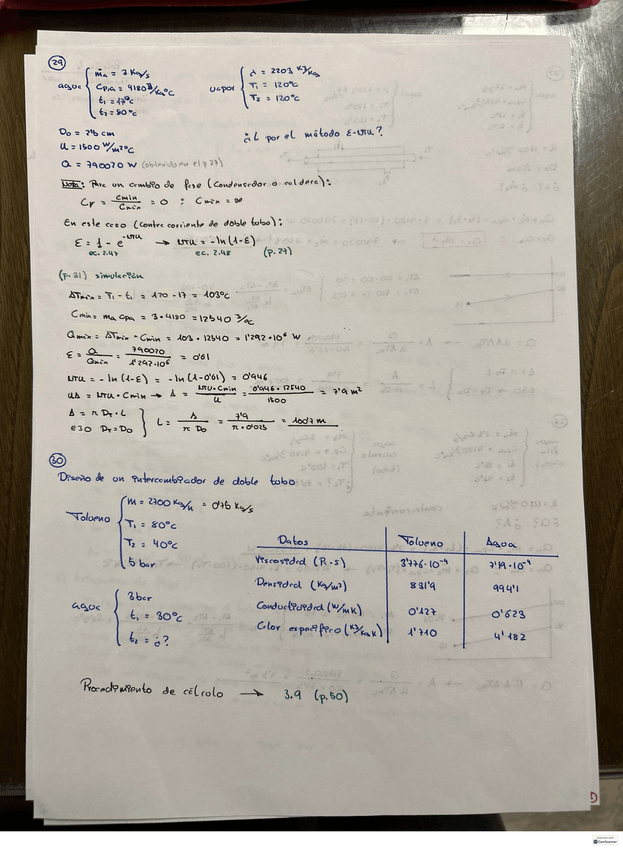 29
agua { ṁa = 3 Kg/s
Cpa = 4180 J/Kg°C
t1 = 17°C
t2 = 80°C
vapor { λ = 2203 KJ/Kg
T1 = 120°C
T2 = 120°C
Do = 2'5 cm
U = 1500 W/m²°C
Q = 790020 W (obtenido en ej 27)
¿L por el método ε-NTU?
Nota: Para un cambio de fase (Condensador o caldera):
En este caso (contracorriente de doble tubo):
ε = 1 - e^-NTU → NTU = -ln(1-ε)
ec. 2.47 ec. 2.48 (p.27)
(p.31) simulación
ΔTmáx = T1 - t1 = 120 - 17 = 103°C
Cmin = ma Cpa = 3·4180 = 12540 J/s°C
Qmáx = ΔTmáx · Cmin = 103 · 12540 = 1'292·10⁶ W
ε = Q/Qmáx = 790020/1'292·10⁶ = 0'61
NTU = -ln(1-ε) = -ln(1-0'61) = 0'946
UA = NTU·Cmin → A = NTU·Cmin/U = 0'946·12540/1500 = 7'9 m²
A = π DT · L
e≃0 DT≃Do } L = A/π Do = 7'9/π·0'025 = 100'7 m
30
Diseño de un intercambiador de doble tubo
Tolueno { m = 2700 Kg/h = 0'75 Kg/s
T1 = 80°C
T2 = 40°C
5 bar
agua { 3 bar
t1 = 30°C
t2 = ¿?
Datos Tolueno Agua
Viscosidad (Pa·s) 3'776·10⁻⁴ 7'19·10⁻⁴
Densidad (Kg/m³) 831'9 994'1
Conductividad (W/mK) 0'127 0'623
Calor específico (KJ/KgK) 1'710 4'182
Procedimiento de cálculo → 3.9 (p.50)
CamScanner